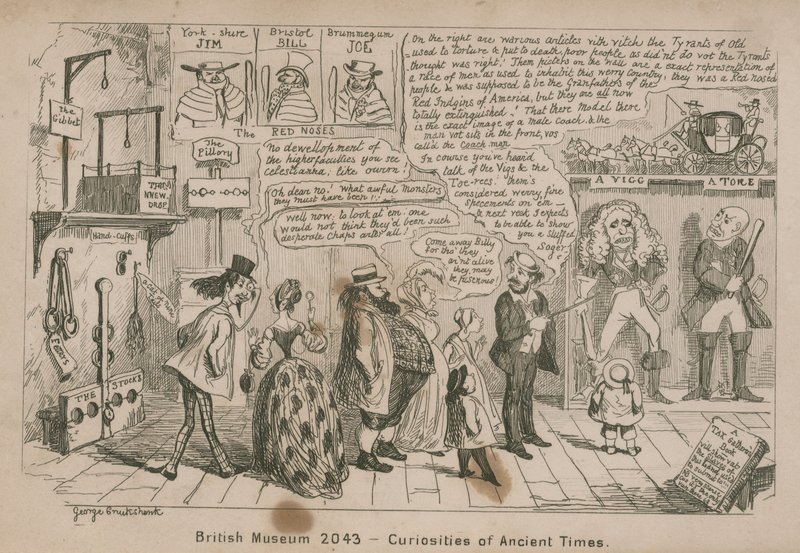 York-shire
JIM
Bristol
BILL
Brummegum
JOE
The RED NOSES
On the right are warious articles vith vitch the Tyrants of Old
used to torture & put to death, poor people, as did'nt do vot the Tyrants
thought was right! Them picters on the wall are a exact representation of
a race of men as used to inhabit this werry Country, they was a Red nosed
people & was supposed to be the Granfathers of the
Red Indgins of America, but they are all now
totally extinguished! That there Model there
is the exact image of a Male Coach & the
man vot sits in the front, vos
call'd the Coach man
In course you've heard
talk of the Vigs & the
Toe-rees! them's
considered werry fine
speciments on 'em
& next veek I expects
to be able to show
you a Stuffed
Soger
The Gibbet
The
Pillory
THE
NNEW
DROP
Hand-Cuffs
Fetters
THE STOCKS
No dewellopment of
the higher faculties you see
Celestianna, like ourn!
Oh dear no! What awful Monsters
they must have been!!
Well now, to look at em, one
would not think they'd been such
desperate Chaps arter all!
Come away Billy
for tho' they
ar'nt alive
they may
be pisenous!
A VIGG
A TORE
A
Tax Gatherers
Book
George Cruikshank
British Museum 2043 – Curiosities of Ancient Times.